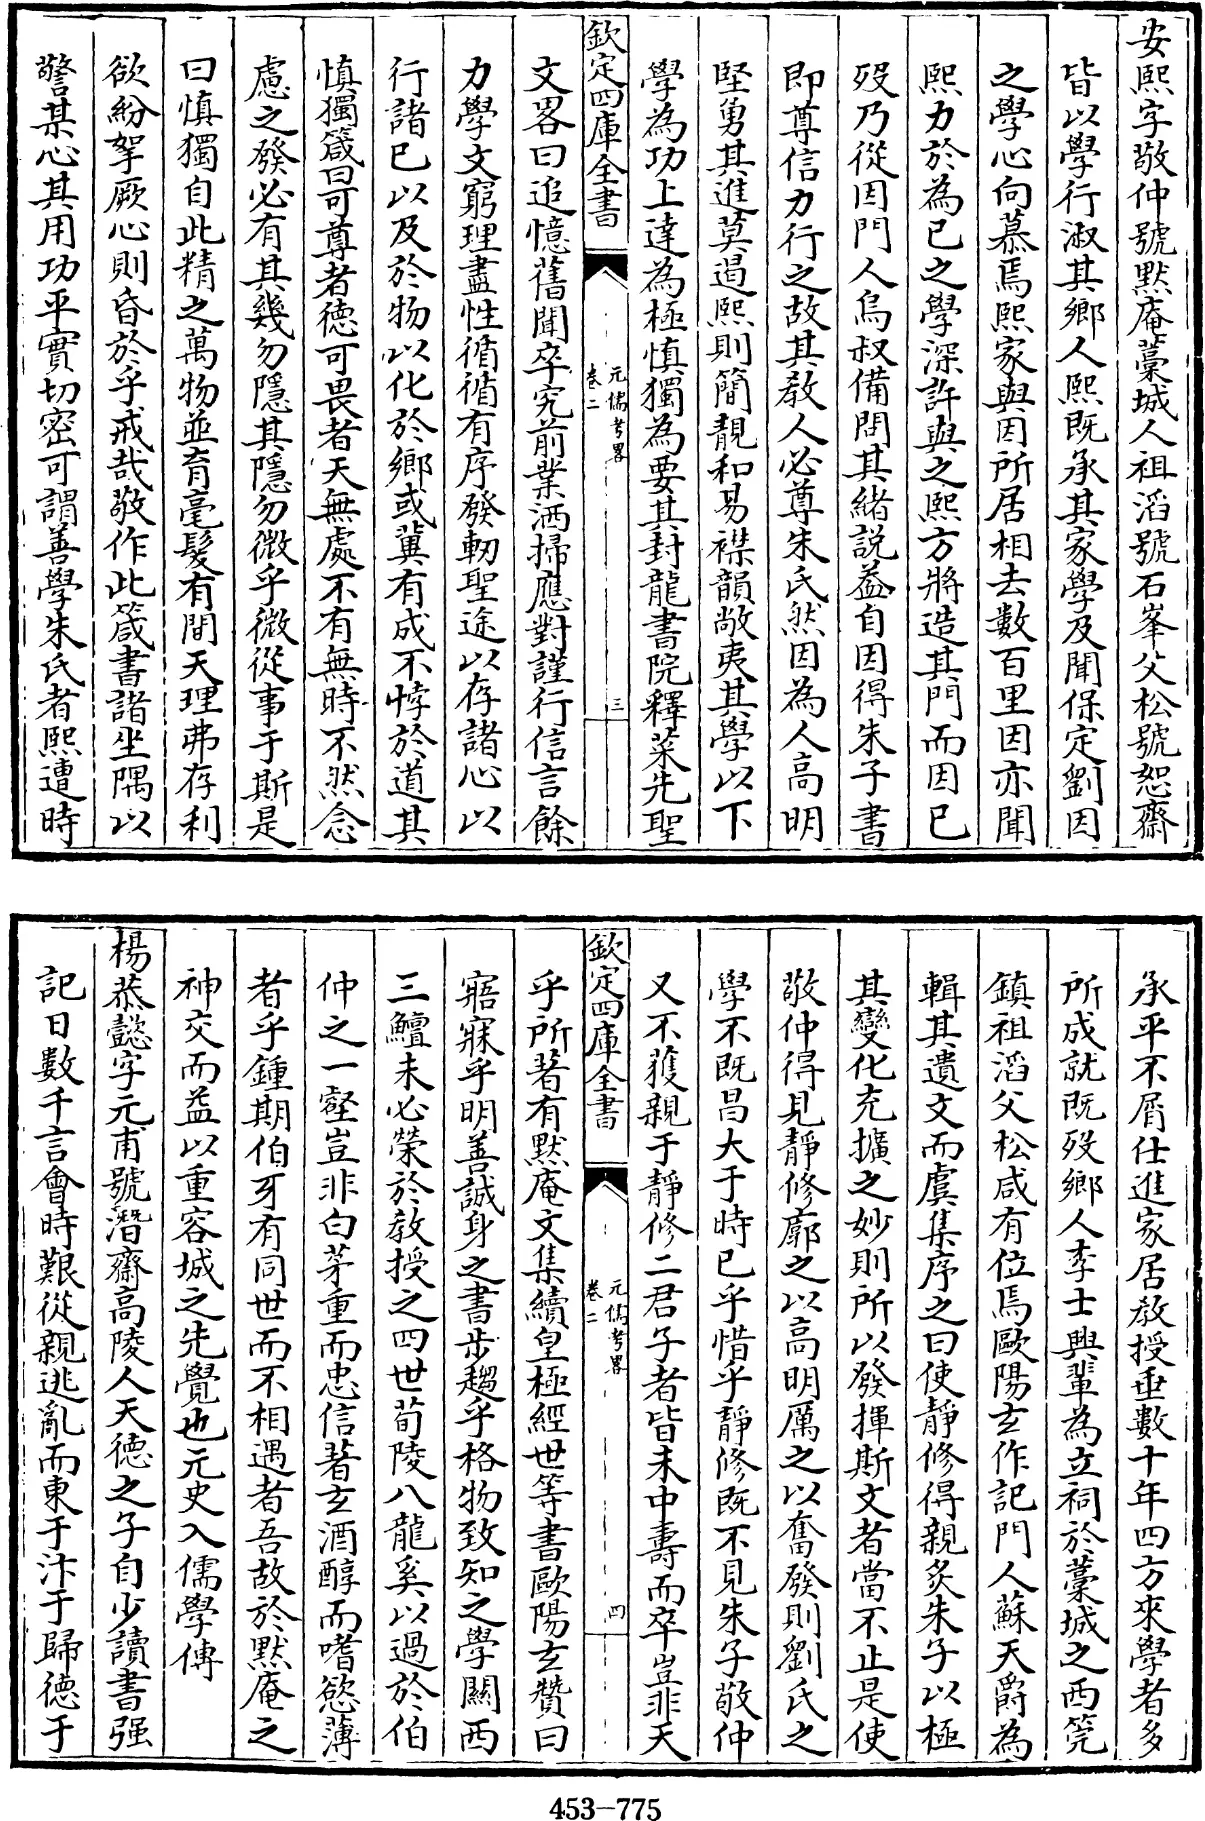 安熙字敬仲號默庵藁城人祖滔號石峯父松號恕齋
皆以學行淑其鄉人熙既承其家學及聞保定劉因
之學心向慕焉熙家與因所居相去數百里因亦聞
熙力於為已之學深許與之熙方將造其門而因已
歿乃從因門人烏叔備問其緒説益自因得朱子書
即尊信力行之故其教人必尊朱氏然因為人高明
堅勇其進莫遏熙則簡靚和易襟韻敞夷其學以下
學為功上達為極慎獨為要其封龍書院釋菜先聖
欽定四庫全書
元儒考畧
卷二
三
文畧曰追憶舊聞卒究前業洒掃應對謹行信言餘
力學文窮理盡性循循有序發軔聖途以存諸心以
行諸已以及於物以化於鄉或冀有成不悖於道其
慎獨箴曰可尊者德可畏者天無處不有無時不然念
慮之發必有其幾勿隱其隱勿微乎微從事于斯是
曰慎獨自此精之萬物並育毫髮有間天理弗存利
欲紛拏厥心則昏於乎戒哉敬作此箴書諸坐隅以
警某心其用功平實切密可謂善學朱氏者熙遭時
承平不屑仕進家居教授垂數十年四方來學者多
所成就既歿鄉人李士興輩為立祠於藁城之西筦
鎮祖滔父松咸有位焉歐陽玄作記門人蘇天爵為
輯其遺文而虞集序之曰使靜修得親炙朱子以極
其變化充擴之妙則所以發揮斯文者當不止是使
敬仲得見靜修廓之以高明厲之以奮發則劉氏之
學不既昌大于時已乎惜乎靜修既不見朱子敬仲
又不獲親于靜修二君子者皆未中壽而卒豈非天
欽定四庫全書
元儒考畧
卷二
四
乎所著有默庵文集續皇極經世等書歐陽玄贊曰
寤寐乎明善誠身之書步趨乎格物致知之學關西
三鱣未必榮於教授之四世荀陵八龍奚以過於伯
仲之一壑豈非白茅重而忠信著玄酒醇而嗜慾薄
者乎鍾期伯牙有同世而不相遇者吾故於默庵之
神交而益以重容城之先覺也元史入儒學傳
楊恭懿字元甫號潛齋高陵人天德之子自少讀書强
記日數千言會時艱從親逃亂而東于汴于歸德于
453-775